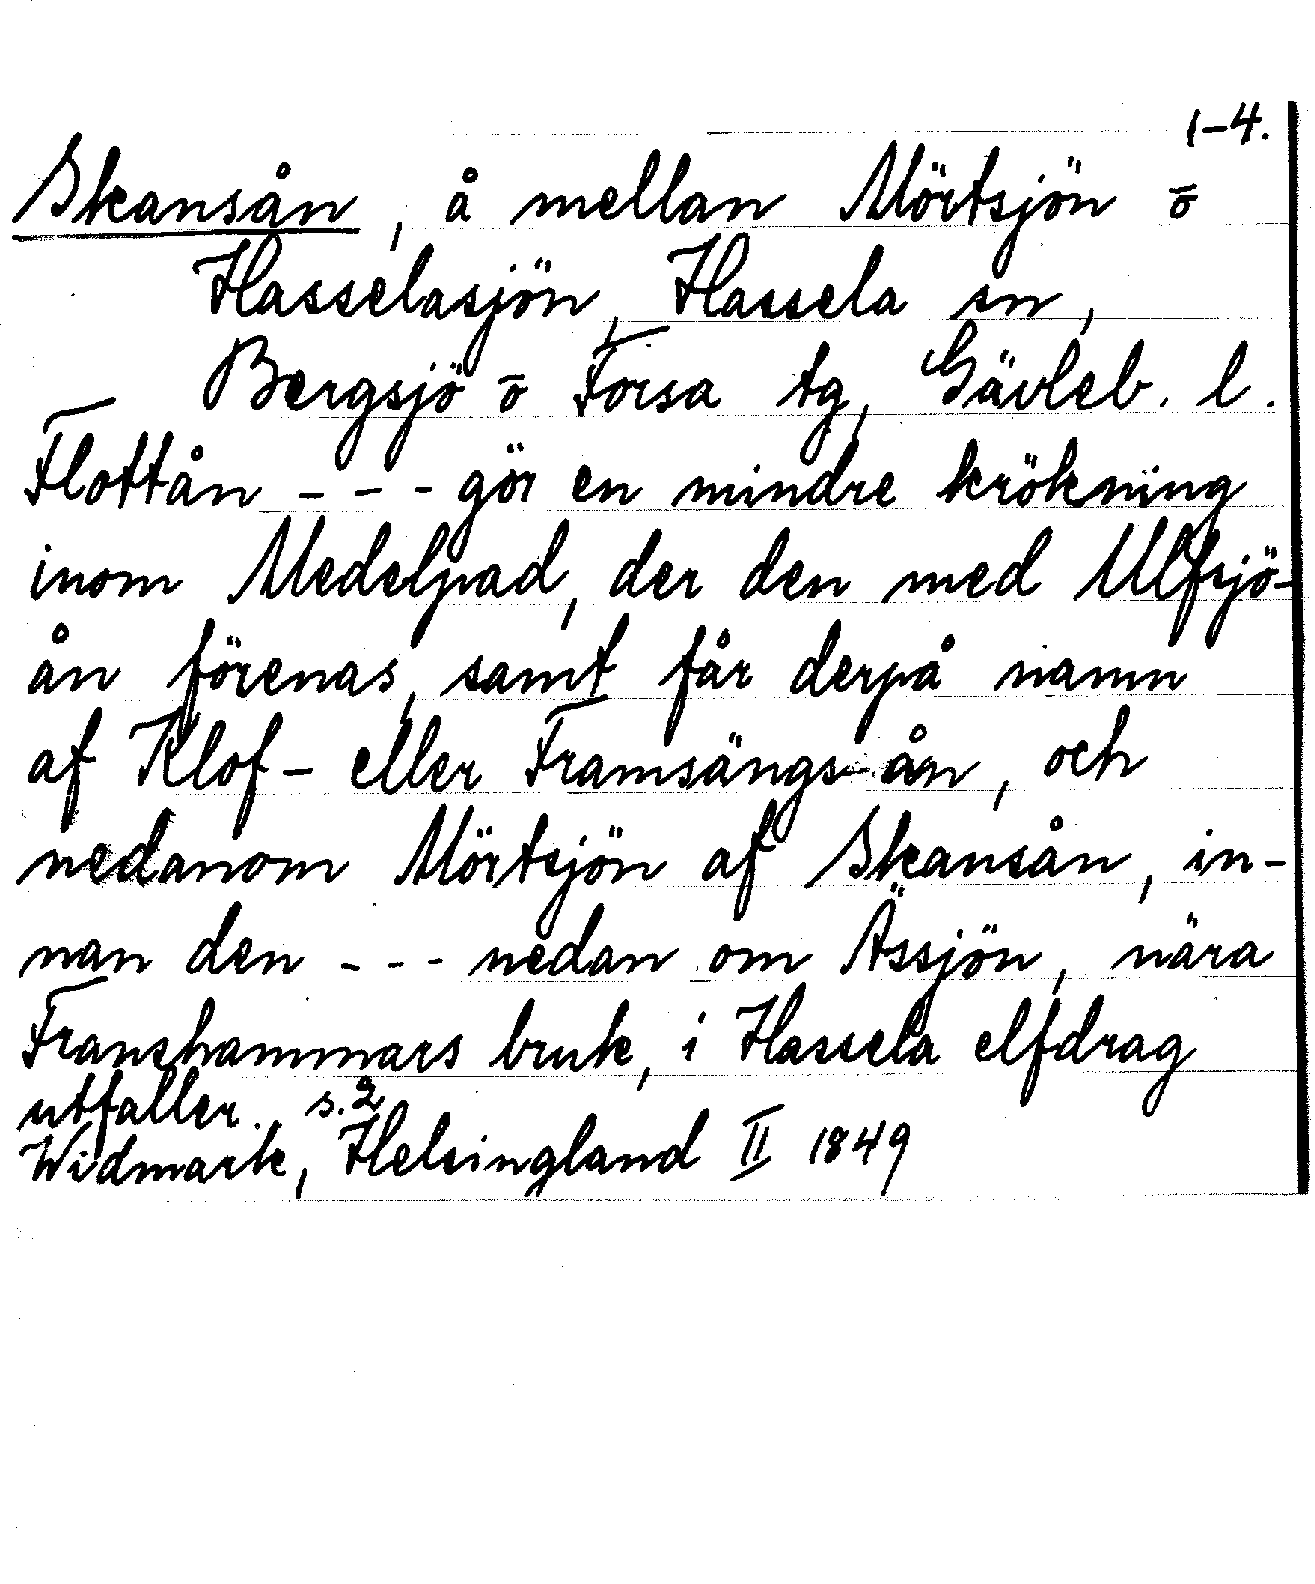 1-4.
Skansån, å mellan Mörtsjön ō
Hasselasjön, Hassela sn,
Bergsjö ō Forsa tg, Gävleb. l.
Flottån - - - gör en mindre krökning
inom Medelpad, der den med Ulfsjö-
ån förenas, samt får derpå namn
af Klof- eller Framsängs-ån, och
nedanom Mörtsjön af Skansån, in-
nan den - - - nedan om Ässjön, nära
Franshammars bruk, i Hassela elfdrag
utfaller. s.2
Widmark, Helsingland II 1849